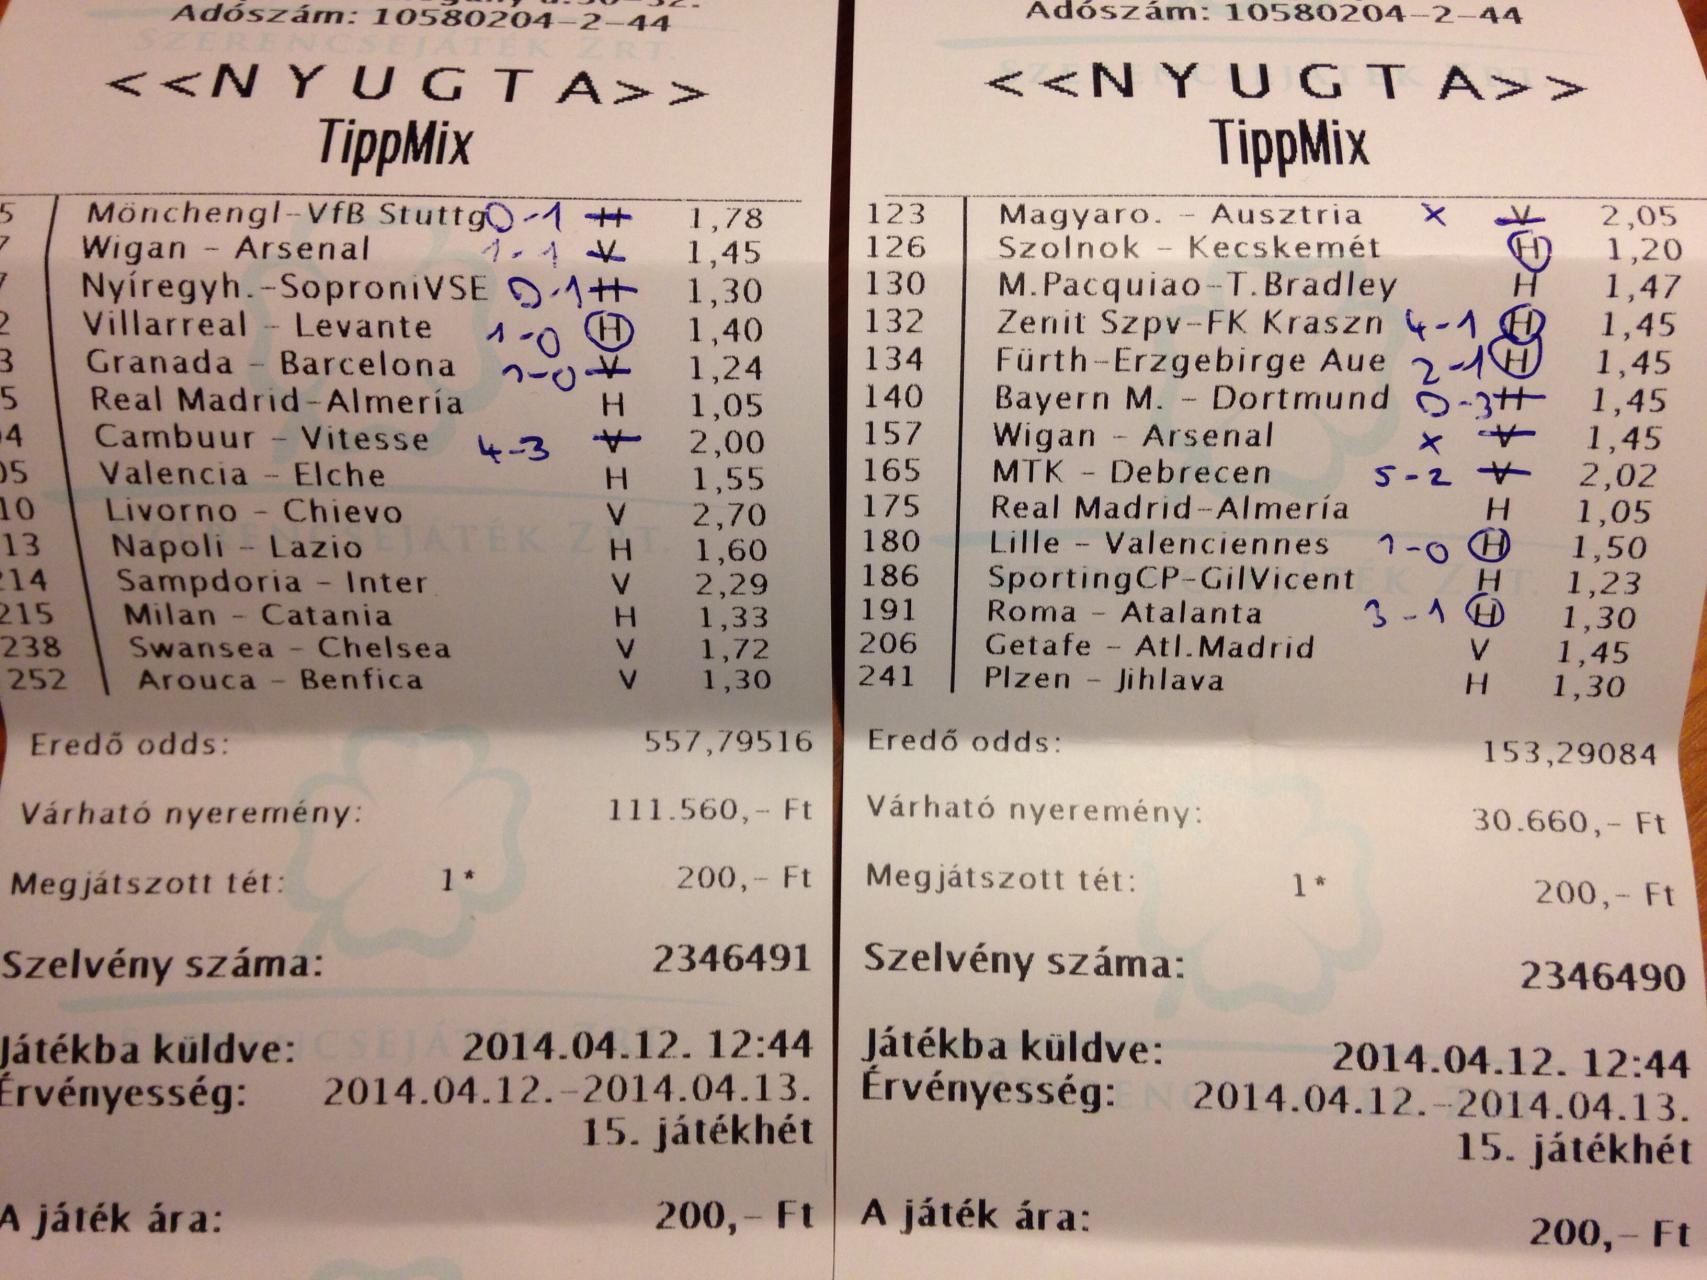 Adószám: 10580204-2-44
SZERENCSEJÁTÉK ZRT.
<<NYUGTA>>
TippMix
5 Mönchengl-VfB Stuttg 0-1 H 1,78
7 Wigan - Arsenal 1-1 V 1,45
7 Nyíregyh.-SoproniVSE 0-1 H 1,30
2 Villarreal - Levante 1-0 H 1,40
3 Granada - Barcelona 1-0 V 1,24
5 Real Madrid-Almería H 1,05
04 Cambuur - Vitesse 4-3 V 2,00
05 Valencia - Elche H 1,55
10 Livorno - Chievo V 2,70
13 Napoli - Lazio H 1,60
214 Sampdoria - Inter V 2,29
215 Milan - Catania H 1,33
238 Swansea - Chelsea V 1,72
252 Arouca - Benfica V 1,30
Eredő odds: 557,79516
Várható nyeremény: 111.560,- Ft
Megjátszott tét: 1* 200,- Ft
Szelvény száma: 2346491
Játékba küldve: 2014.04.12. 12:44
Érvényesség: 2014.04.12.-2014.04.13.
15. játékhét
A játék ára: 200,- Ft
Adószám: 10580204-2-44
<<NYUGTA>>
TippMix
123 Magyaro. - Ausztria x V 2,05
126 Szolnok - Kecskemét H 1,20
130 M.Pacquiao-T.Bradley H 1,47
132 Zenit Szpv-FK Kraszn 4-1 H 1,45
134 Fürth-Erzgebirge Aue 2-1 H 1,45
140 Bayern M. - Dortmund 0-3 H 1,45
157 Wigan - Arsenal x V 1,45
165 MTK - Debrecen 5-2 V 2,02
175 Real Madrid-Almería H 1,05
180 Lille - Valenciennes 1-0 H 1,50
186 SportingCP-GilVicent H 1,23
191 Roma - Atalanta 3-1 H 1,30
206 Getafe - Atl.Madrid V 1,45
241 Plzen - Jihlava H 1,30
Eredő odds: 153,29084
Várható nyeremény: 30.660,- Ft
Megjátszott tét: 1* 200,- Ft
Szelvény száma: 2346490
Játékba küldve: 2014.04.12. 12:44
Érvényesség: 2014.04.12.-2014.04.13.
15. játékhét
A játék ára: 200,- Ft